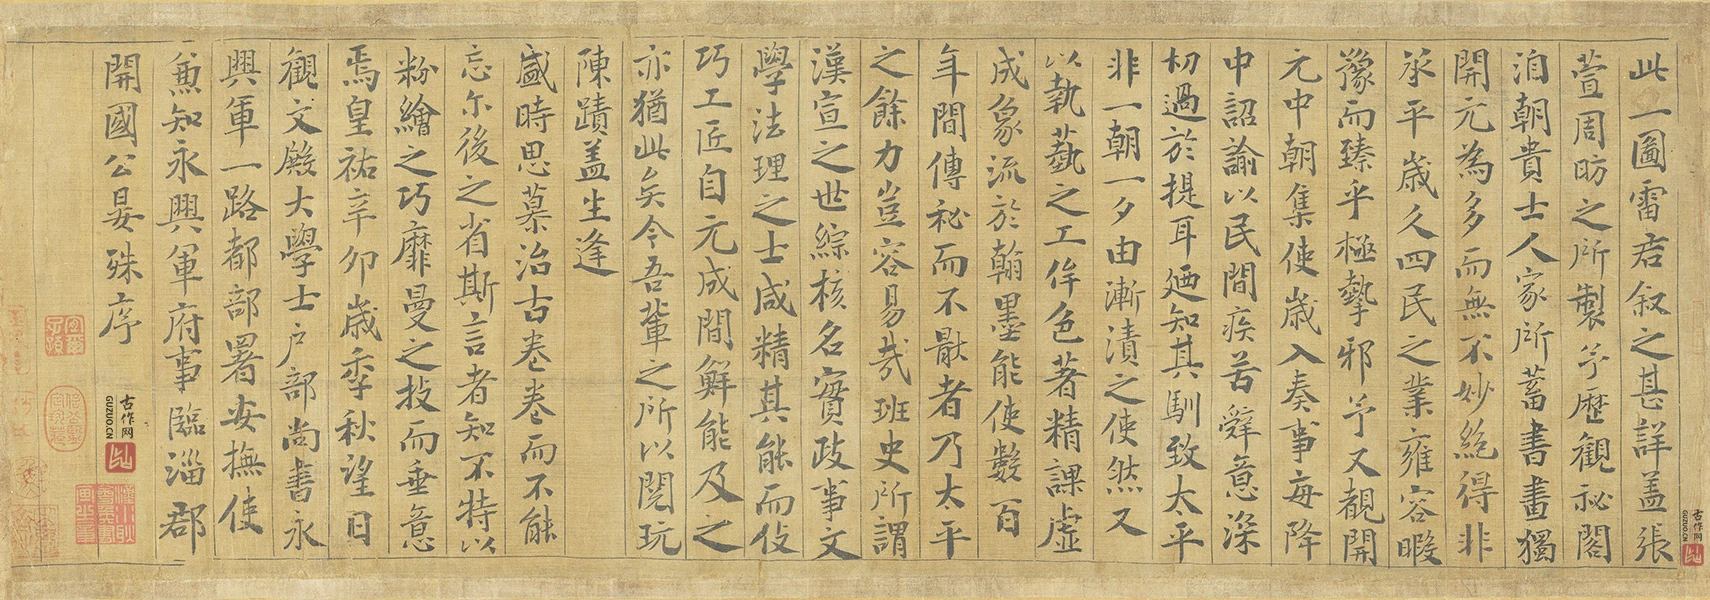 此一圖雷君叙之甚詳盖張
萱周昉之所製予歷觀祕閣
洎朝貴士人家所蓄書畫獨
開元為多而無不妙絶得非
承平歳久四民之業雍容暇
豫而臻乎極摯邪予又覩開
元中朝集使歳入奏事每降
中詔諭以民間疾苦辭意深
切過於提耳廼知其馴致太平
非一朝一夕由漸漬之使然又
以執藝之工侔色著精課虛
成象流於翰墨能使數百
年間傳祕而不猒者乃太平
之餘力豈容易哉班史所謂
漢宣之世綜核名實政事文
學法理之士咸精其能而伎
巧工匠自元成間鮮能及之
亦猶此矣今吾輩之所以閱玩
陳蹟盖生逢
盛時思慕治古惓惓而不能
忘尓後之省斯言者知不特以
粉繪之巧靡曼之投而垂意
焉皇祐辛卯歳季秋望日
觀文殿大學士户部尚書永
興軍一路都部署安撫使
兼知永興軍府事臨淄郡
開國公晏殊序
古作网
GUZUO.CN
古作网
GUZUO.CN